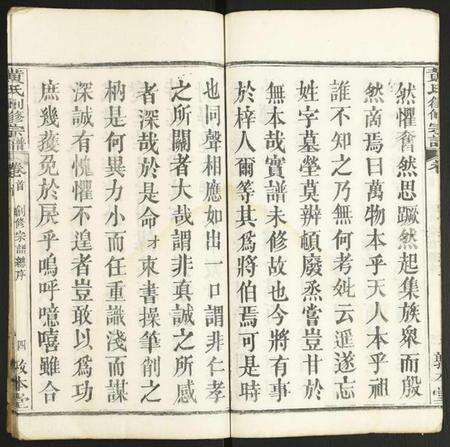 然懼奮然思蹶然起集族衆而殷
然商焉曰萬物本乎天人本乎祖
誰不知之乃無何考妣云徂遂忘
姓字墓塋莫辨頓廢烝嘗豈甘於
無本哉實譜未修故也今將有事
於梓人爾等其為將伯焉可是時
也同聲相應如出一口謂非仁孝
之所關者大哉謂非真誠之所感
者深哉於是命才束書操筆削之
柄是何異力小而任重識淺而謀
深誠有愧懼不遑者豈敢以為功
庶幾獲免於戾乎嗚呼噫嘻雖合
黃氏創修宗譜 卷首 創修宗譜總序 四 敦本堂